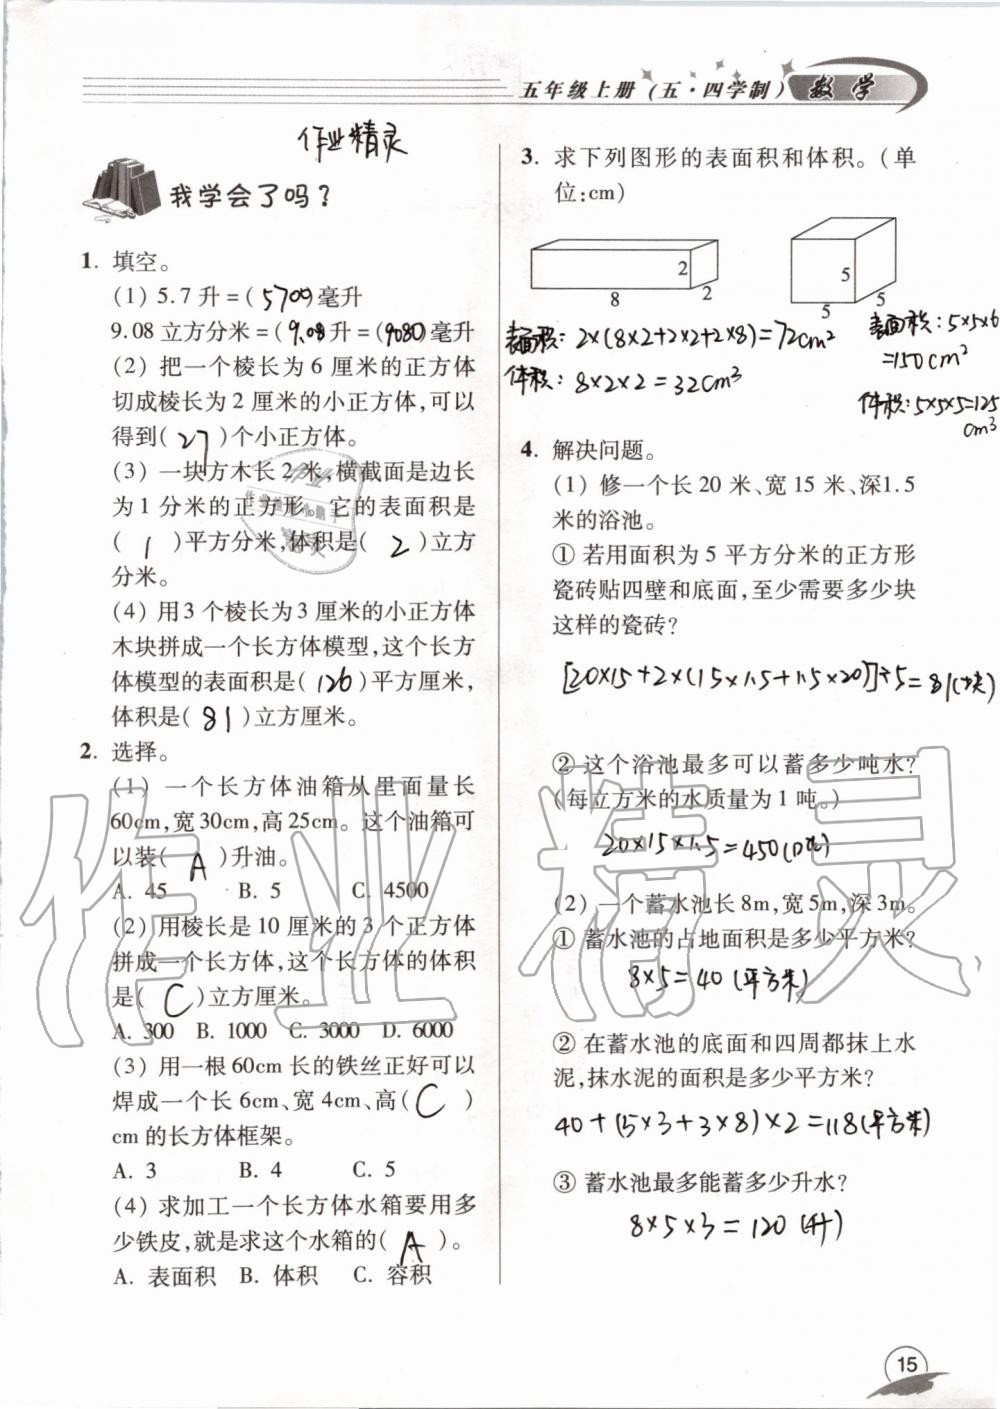 五年级上册(五·四学制) 数学
作业精灵
我学会了吗?
1. 填空。
(1) 5.7升=(5700)毫升
9.08立方分米=(9.08)升=(9080)毫升
(2) 把一个棱长为6厘米的正方体
切成棱长为2厘米的小正方体,可以
得到(27)个小正方体。
(3) 一块方木长2米,横截面是边长
为1分米的正方形。它的表面积是
(1)平方分米,体积是(2)立方
分米。
(4) 用3个棱长为3厘米的小正方体
木块拼成一个长方体模型,这个长方
体模型的表面积是(126)平方厘米,
体积是(81)立方厘米。
2. 选择。
(1) 一个长方体油箱从里面量长
60cm,宽30cm,高25cm。这个油箱可
以装(A)升油。
A. 45 B. 5 C. 4500
(2) 用棱长是10厘米的3个正方体
拼成一个长方体,这个长方体的体积
是(C)立方厘米。
A. 300 B. 1000 C. 3000 D. 6000
(3) 用一根60cm长的铁丝正好可以
焊成一个长6cm、宽4cm、高(C)
cm的长方体框架。
A. 3 B. 4 C. 5
(4) 求加工一个长方体水箱要用多
少铁皮,就是求这个水箱的(A)。
A. 表面积 B. 体积 C. 容积
3. 求下列图形的表面积和体积。(单
位:cm)
2
8
2
5
5
5
表面积:2×(8×2+2×2+2×8)=72cm²
体积:8×2×2=32cm³
表面积:5×5×6
=150cm²
体积:5×5×5=125
cm³
4. 解决问题。
(1) 修一个长20米、宽15米、深1.5
米的浴池。
① 若用面积为5平方分米的正方形
瓷砖贴四壁和底面,至少需要多少块
这样的瓷砖?
[20×15+2×(15×1.5+1.5×20)]÷5=81(块)
② 这个浴池最多可以蓄多少吨水?
(每立方米的水质量为1吨。)
20×15×1.5=450(吨)
(2) 一个蓄水池长8m,宽5m,深3m。
① 蓄水池的占地面积是多少平方米?
8×5=40(平方米)
② 在蓄水池的底面和四周都抹上水
泥,抹水泥的面积是多少平方米?
40+(5×3+3×8)×2=118(平方米)
③ 蓄水池最多能蓄多少升水?
8×5×3=120(升)
15
作业精灵